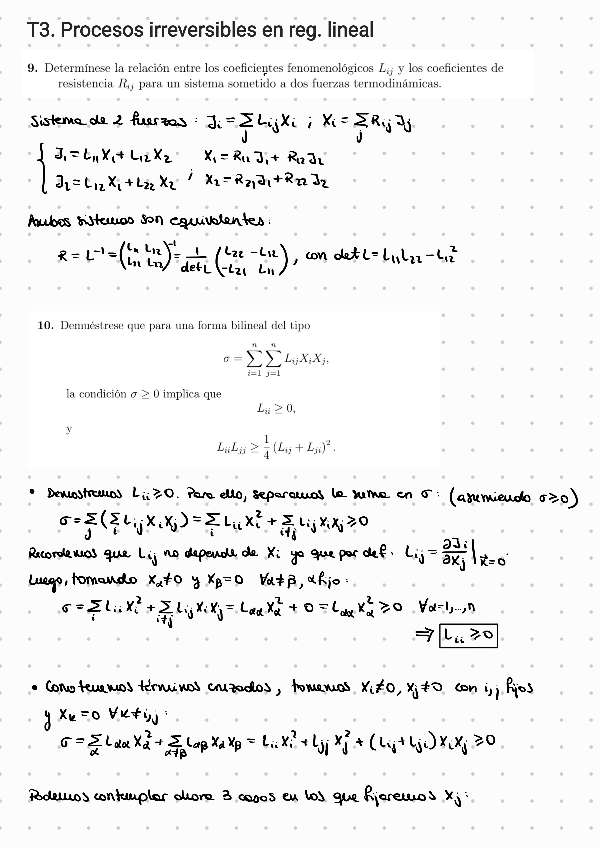 T3. Procesos irreversibles en reg. lineal
9. Determínese la relación entre los coeficientes fenomenológicos L_{ij} y los coeficientes de
resistencia R_{ij} para un sistema sometido a dos fuerzas termodinámicas.
Sistema de 2 fuerzas : J_i = ∑_j L_{ij} X_i ; X_i = ∑_j R_{ij} J_j
{ J_1 = L_{11} X_1 + L_{12} X_2 X_1 = R_{11} J_1 + R_{12} J_2
J_2 = L_{12} X_1 + L_{22} X_2 ; X_2 = R_{21} J_1 + R_{22} J_2
Ambos sistemas son equivalentes:
R = L^{-1} = (L_{11} L_{12} L_{21} L_{22})^{-1} = 1/det L (L_{22} -L_{12} -L_{21} L_{11}) , con det L = L_{11} L_{22} - L_{12}^2
10. Demuéstrese que para una forma bilineal del tipo
σ = ∑_{i=1}^n ∑_{j=1}^n L_{ij} X_i X_j,
la condición σ ≥ 0 implica que
L_{ii} ≥ 0,
y
L_{ii} L_{jj} ≥ 1/4 (L_{ij} + L_{ji})^2 .
• Demostremos L_{ii} ≥ 0. Para ello, separamos la suma en σ : (asumiendo σ ≥ 0)
σ = ∑_j (∑_i L_{ij} X_i X_j) = ∑_i L_{ii} X_i^2 + ∑_{i≠j} L_{ij} X_i X_j ≥ 0
Recordemos que L_{ij} no depende de X_i ya que por def. L_{ij} = ∂J_i/∂X_j |_{X⃗=0}.
Luego, tomando X_α ≠ 0 y X_β = 0 ∀α≠β, α fijo:
σ = ∑_i L_{ii} X_i^2 + ∑_{i≠j} L_{ij} X_i X_j = L_{αα} X_α^2 + 0 = L_{αα} X_α^2 ≥ 0 ∀α=1,...,n
⇒ L_{ii} ≥ 0
• Como tenemos términos cruzados, tomemos X_i ≠ 0, X_j ≠ 0 con i,j fijos
y X_k = 0 ∀k≠i,j :
σ = ∑_α L_{αα} X_α^2 + ∑_{α≠β} L_{αβ} X_α X_β = L_{ii} X_i^2 + L_{jj} X_j^2 + (L_{ij} + L_{ji}) X_i X_j ≥ 0
Podemos contemplar ahora 3 casos en los que fijaremos X_j :